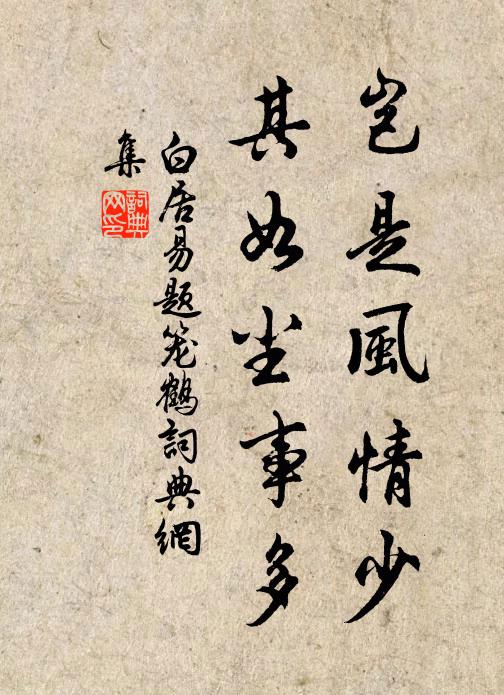 豈是風情少
其如塵事多
白居易題笼鶴詞典網
集
詞典
网印